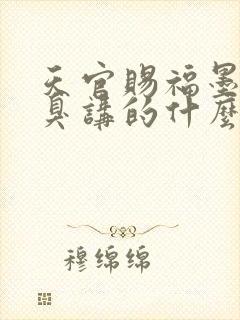 天官賜福墨
具講的什麼
穆绵绵